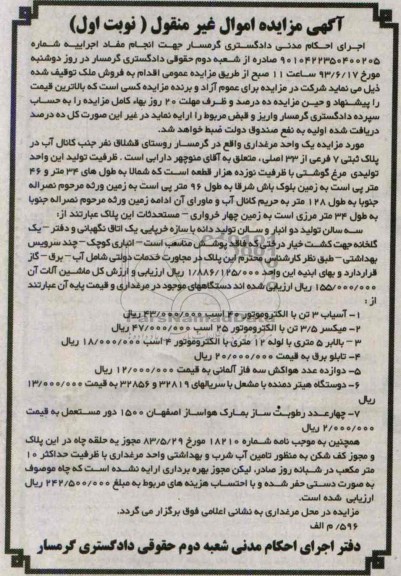 آگهی مزایده اموال غیر منقول ( نوبت اول)
اجرای احکام مدنی دادگستری گرمسار جهت انجام مفاد اجراییه شماره
۹۰۱۰۴۲۲۳۵۰۴۰۰۲۰۵ صادره از شعبه دوم حقوقی دادگستری گرمسار در روز دوشنبه
مورخ ۹۳/۶/۱۷ ساعت ۱۱ صبح از طریق مزایده عمومی اقدام به فروش ملک توقیف شده
ذیل می نماید شرکت در مزایده برای عموم آزاد و برنده مزایده کسی است که بالاترین قیمت
را پیشنهاد و حین مزایده ده درصد و ظرف مهلت ۲۰ روز بهاء کامل مزایده را به حساب
سپرده دادگستری گرمسار واریز و قبض مربوط را ارایه نماید در غیر این صورت کل ده درصد
دریافت شده اولیه به نفع صندوق دولت ضبط خواهد شد.
مورد مزایده یک واحد مرغداری واقع در گرمسار روستای قشلاق نفر جنب کانال آب در
پلاک ثبتی ۷ فرعی از ۳۳ اصلی، متعلق به آقای منوچهر دارابی است . ظرفیت تولید این واحد
تولیدی مرغ گوشتی با ظرفیت نوزده هزار قطعه است که شمالا به طول های ۳۴ متر و ۴۶
متر پی است به زمین بلوک باش شرقا به طول ۹۶ متر پی است به زمین ورثه مرحوم نصراله
جنوبا به طول ۱۲۸ متر به حریم کانال آب و ماورای آن ادامه زمین ورثه مرحوم نصراله جنوبا
به طول ۳۴ متر مرزی است به زمین چهار خرواری – مستحدثات این پلاک عبارتند از:
سه سالن تولید دو انبار و سالن تولید دانه با سازه خرپایی یک اتاق نگهبانی و دفتر – یک
گلخانه جهت کشت خیار درختی که فاقد پوشش مناسب است – انباری کوچک – چند سرویس
بهداشتی – طبق نظر کارشناس محترم این پلاک در مجاورت خدمات دولتی شامل آب – برق – گاز
قراردارد و بهای ابنیه این واحد ۱/۸۸۶/۱۲۵/۰۰۰ ریال ارزیابی و ارزش کل ماشین آلات آن
۱۵۵/۰۰۰/۰۰۰ ریال ارزیابی شده اند دستگاههای موجود در مرغداری و قیمت پایه آن عبارتند
از :
۱– آسیاب ۳ تن با الکتروموتور ۴۰ اسب ۴۳/۰۰۰/۰۰۰ ریال
۲– میکسر ۳/۵ تن با الکتروموتور ۲۵ اسب ۴۷/۰۰۰/۰۰۰ ریال
۳– بالابر ۵ متری با لوله ۱۲ متری با الکتروموتور ۴ اسب ۱۸/۰۰۰/۰۰۰ ریال
۴– تابلو برق به قیمت ۲۰/۰۰۰/۰۰۰ ریال
۵– دوازده عدد هواکش سه فاز آلمانی به قیمت ۱۲/۰۰۰/۰۰۰ ریال
۶– دوستگاه هیتر دمنده با مشعل با سریالهای ۳۲۸۱۹ و ۳۲۸۵۶ به قیمت ۱۳/۰۰۰/۰۰۰
ریال
۷– چهارعدد رطوبت ساز بمارک هواساز اصفهان ۱۵۰۰ دور مستعمل به قیمت
۲/۰۰۰/۰۰۰ ریال
همچنین به موجب نامه شماره ۱۸۲۱۰ مورخ ۸۳/۵/۲۹ مجوز یه حلقه چاه در این پلاک
و مجوز کف شکن به منظور تامین آب شرب و بهداشتی واحد مرغداری با ظرفیت حداکثر ۱۰
متر مکعب در شبانه روز صادر، لیکن مجوز بهره برداری ارایه نشده است که چاه موصوف
به صورت دستی حفر شده و با احتساب هزینه های مربوط به مبلغ ۲۴۲/۵۰۰/۰۰۰ ریال
ارزیابی شده است.
مزایده در محل مرغداری به نشانی اعلامی فوق برگزار می گردد.
۵۹۶/ م الف
دفتر اجرای احکام مدنی شعبه دوم حقوقی دادگستری گرمسار